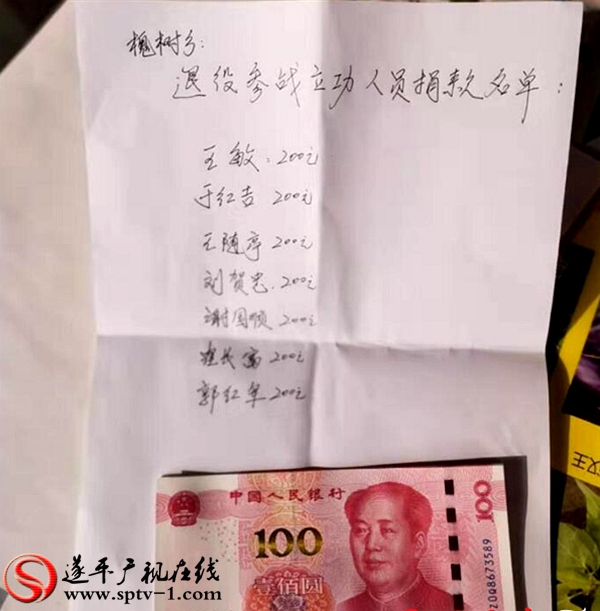 槐树乡:
退役参战立功人员捐款名单:
王敏:200元
于红吉 200元
王随亭 200元
刘贺忠.200元
谢国顺 200元
长富 200元
郭红军 200元
中國人民銀行
100
100
壹佰圆
ZQ08673589
汉王
遂平广视在线
www.sptv-1.com